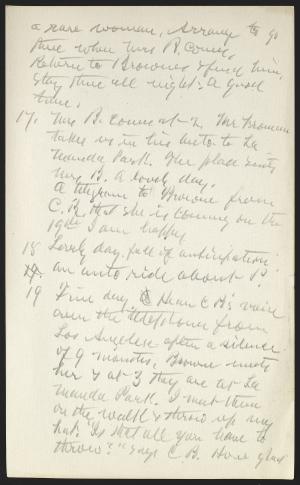 a rare woman. Arrange to go
there when Mrs R. comes.
Return to Browns & find him,
stay there all night. A good
time.
17. Mrs B. comes at 2. Mr Browne
takes us in his auto to La
Manda Park. The place suits
Mrs B. A lovely day.
A telegram to Browne from
C.B. that she is coming on the
19th. I am happy.
18 Lovely day, full of anticipation.
an auto ride about P.
19 Fine day. Hear C B's voice
over the telephone from
Los Angeles after a silence
of 9 months. Browne meets
her & at 3 they are at La
Manda Park. I meet them
on the walk & throw up my
hat. "Is that all you have to
throw?" says C. B. How glad